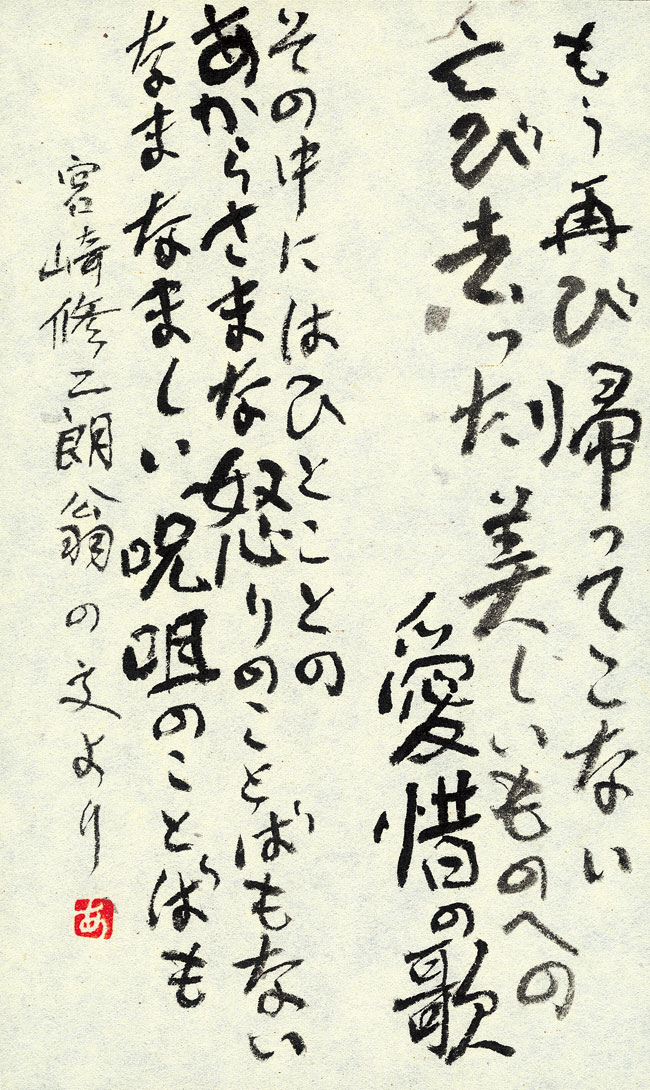 もう再び帰ってこない
亡び去った美しいものへの
愛惜の歌
その中にはひとことの
あからさまな怒りのことばもない
なまなましい呪咀のことばも
宮崎修二朗翁の文より
あ